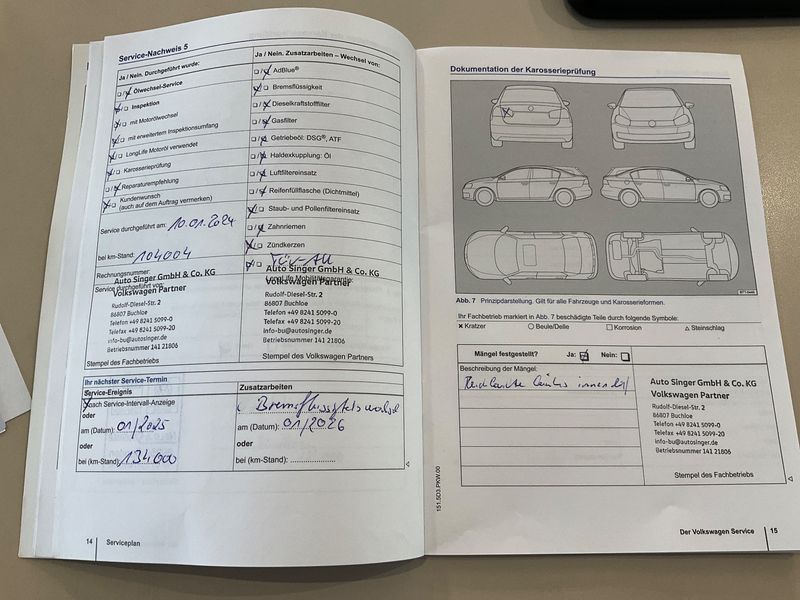 Service-Nachweis 5
Ja / Nein. Durchgeführt wurde:
Ölwechsel-Service
Inspektion
mit Motorölwechsel
mit erweitertem Inspektionsumfang
LongLife Motoröl verwendet
Karosserieprüfung
Reparaturempfehlung
Kundenwunsch
(auch auf dem Auftrag vermerken)
Service durchgeführt am: 10.01.2024
bei km-Stand: 104004
Rechnungsnummer:
Service durchgeführt von:
Auto Singer GmbH & Co. KG
Volkswagen Partner
Rudolf-Diesel-Str. 2
86807 Buchloe
Telefon +49 8241 5099-0
Telefax +49 8241 5099-20
info-bu@autosinger.de
Betriebsnummer 141 21806
Stempel des Fachbetriebs
Ja / Nein. Zusatzarbeiten – Wechsel von:
AdBlue®
Bremsflüssigkeit
Dieselkraftstofffilter
Gasfilter
Getriebeöl: DSG®, ATF
Haldexkupplung: Öl
Luftfiltereinsatz
Reifenfüllflasche (Dichtmittel)
Staub- und Pollenfiltereinsatz
Zahnriemen
Zündkerzen
TÜV-AU
Auto Singer GmbH & Co. KG
LongLife Mobilitätsgarantie:
Volkswagen Partner
Rudolf-Diesel-Str. 2
86807 Buchloe
Telefon +49 8241 5099-0
Telefax +49 8241 5099-20
info-bu@autosinger.de
Betriebsnummer 141 21806
Stempel des Volkswagen Partners
Ihr nächster Service-Termin
Service-Ereignis
nach Service-Intervall-Anzeige
oder
am (Datum): 01/2025
oder
bei (km-Stand): 134000
Zusatzarbeiten
am (Datum): 01/2026
oder
bei (km-Stand): ....................
14 Serviceplan
Dokumentation der Karosserieprüfung
Abb. 7 Prinzipdarstellung. Gilt für alle Fahrzeuge und Karosserieformen.
Ihr Fachbetrieb markiert in Abb. 7 beschädigte Teile durch folgende Symbole:
x Kratzer ○ Beule/Delle □ Korrosion △ Steinschlag
Mängel festgestellt? Ja: Nein:
Beschreibung der Mängel:
Auto Singer GmbH & Co. KG
Volkswagen Partner
Rudolf-Diesel-Str. 2
86807 Buchloe
Telefon +49 8241 5099-0
Telefax +49 8241 5099-20
info-bu@autosinger.de
Betriebsnummer 141 21806
Stempel des Fachbetriebs
151.5D3.PKW.00
Der Volkswagen Service 15